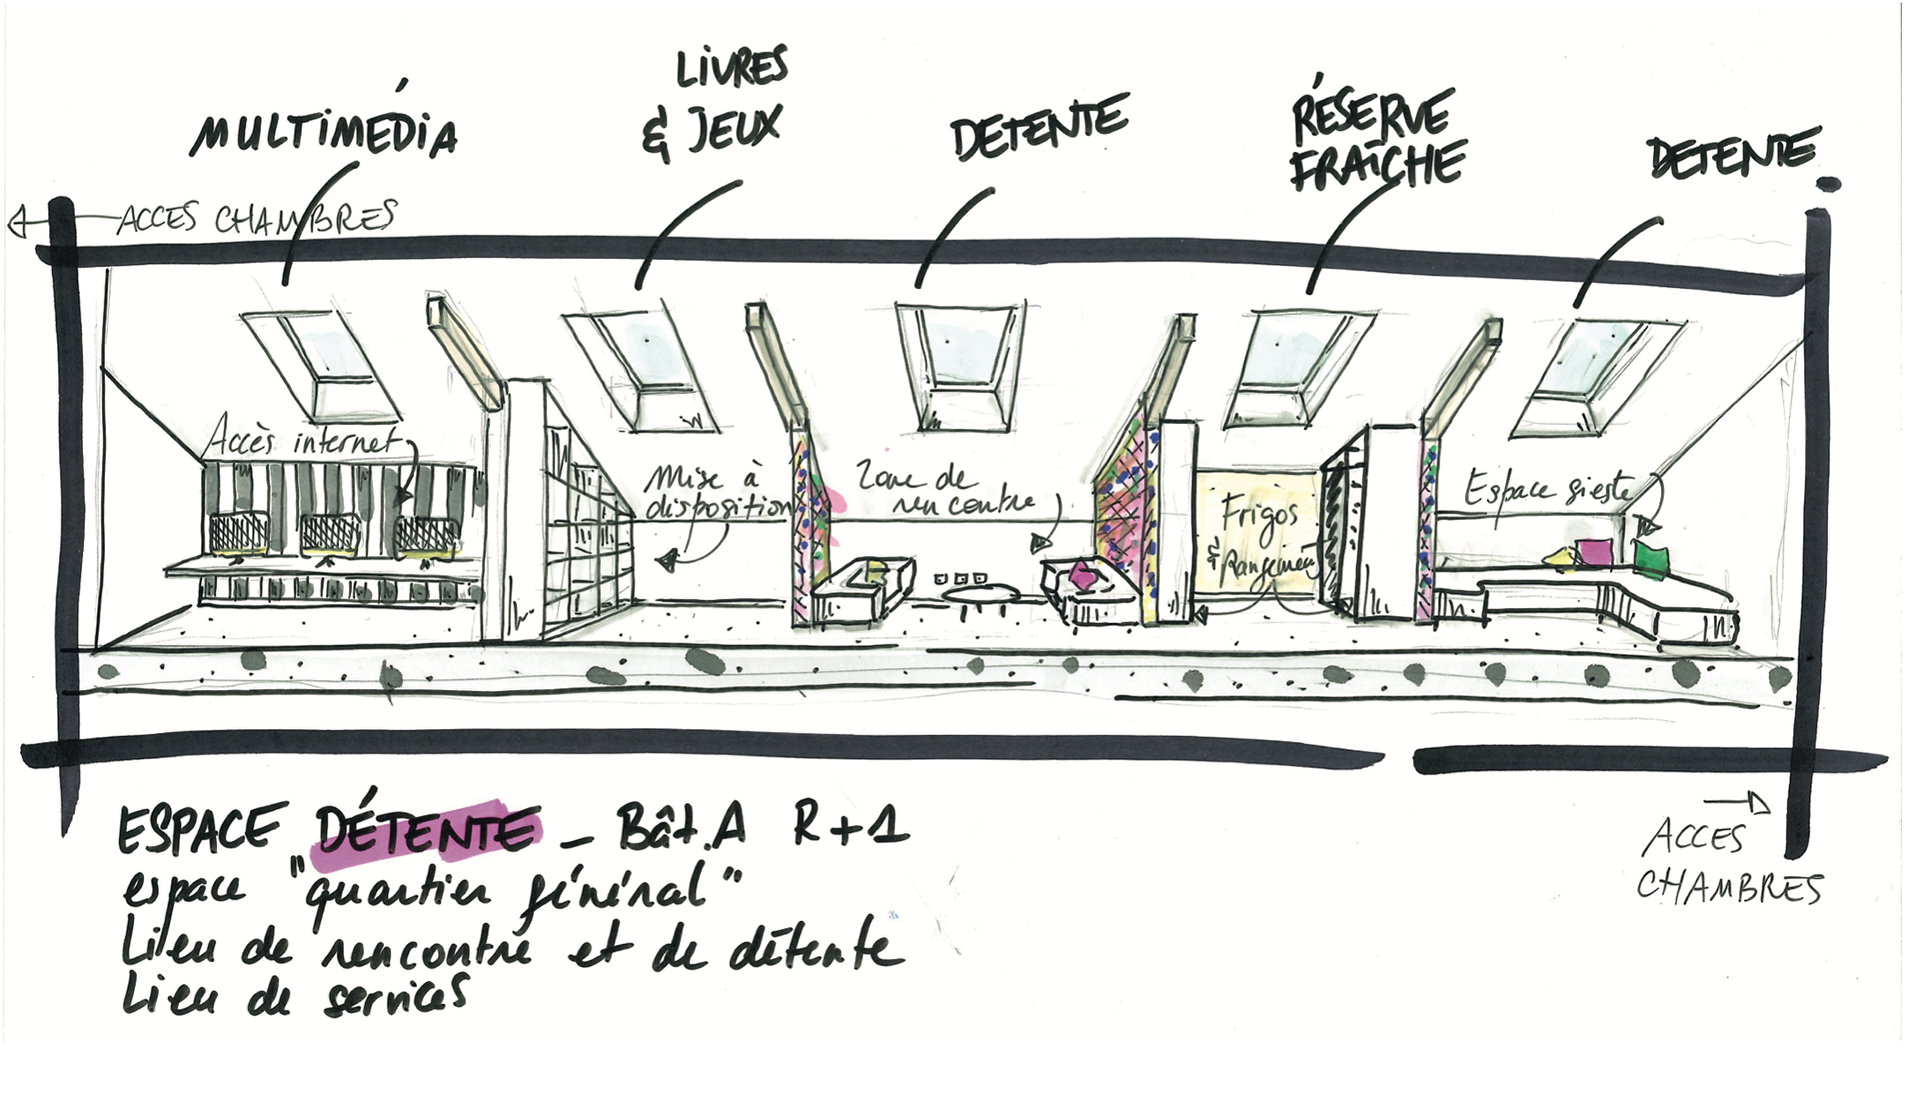 MULTIMÉDIA
LIVRES
& JEUX
DETENTE
RÉSERVE
FRAÎCHE
DETENTE
ACCES CHAMBRES
Accès internet
Mise à
disposition
Zone de
rencontre
Frigos
& Rangement
Espace sieste
ESPACE DÉTENTE - Bât.A R+1
espace "quartier général"
Lieu de rencontre et de détente
Lieu de services
ACCES
CHAMBRES